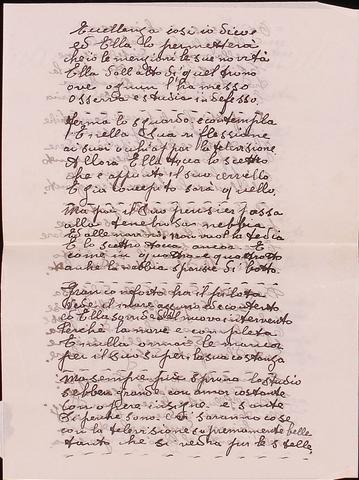 Eccellenza così io dicevo
ed Ella lo permetterà
che io le menzioni le sue novità
Ella dall'alto di quel trono
ove ognun l'ha messo
Osserva e studia indefesso.
ferma lo sguardo, e contempla
E nella Sua riflessione
ai suoi per la televisione
Allora Ella tocca lo scettro
che è appunto il suo cervello
E già concepito sarà quello.
Ma poi il Suo pensier passa
alla tenebrosa nebbia
E alle navi non
E lo scettro tocca ancora E
come in quattro e quattrotto
anche la nebbia sparisce di botto.
Gran conforto ha il pilota
Vede il mare
Ed Ella sorride del nuovo intervento
Perchè la nave è completa
E nulla ormai le manca
per il suo sua costanza
Ma sempre più sprona lo studio
sebben grande con amor costante
con opere insigne e sante
Di poche sono. Ci saranno cose
con la televisione supremamente belle
tanto che si vedrà pur le stelle